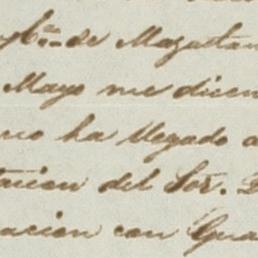 de Mazatlan
Mayo me dicen
no ha llegado a
tacion del Sor.
acion con Gua